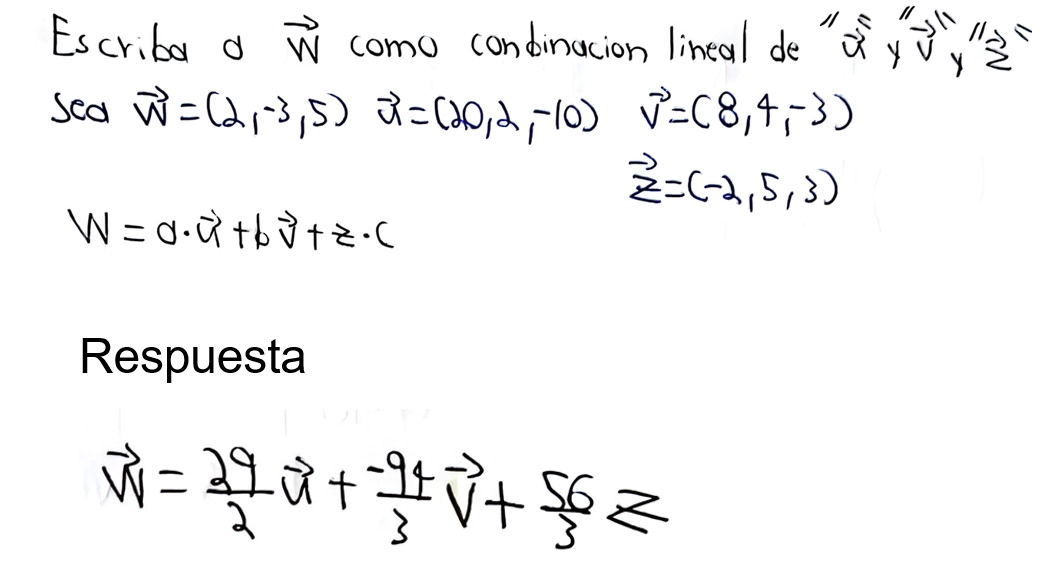 Escriba a w⃗ como conbinacion lineal de "u⃗" y "v⃗" y "z⃗"
sea w⃗=(2,-3,5) u⃗=(20,2,-10) v⃗=(8,4,-3)
z⃗=(-2,5,3)
W=a·u⃗+b v⃗+z·c
Respuesta
w⃗ = 29/2 u⃗ + -94/3 v⃗ + 56/3 z